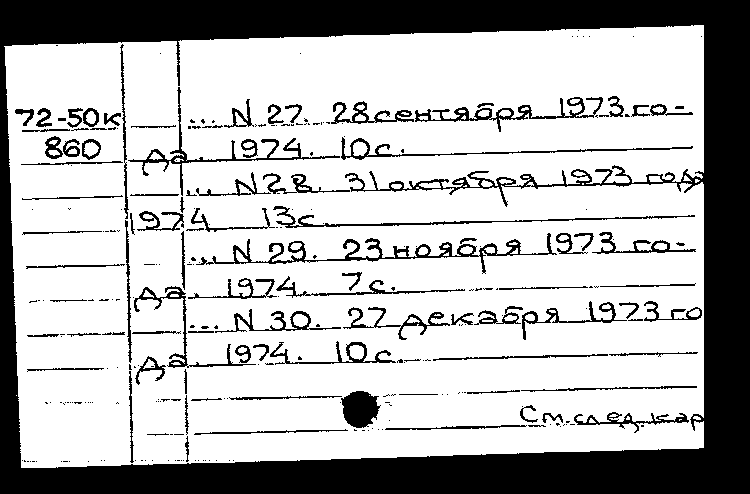 72-50к ... N 27. 28 сентября 1973 го-
860 да. 1974. 10 с.
... N 28. 31 октября 1973 года
1974 13 с.
... N 29. 23 ноября 1973 го-
да. 1974. 7 с.
... N 30. 27 декабря 1973 го
да. 1974. 10 с.
См. след. кар